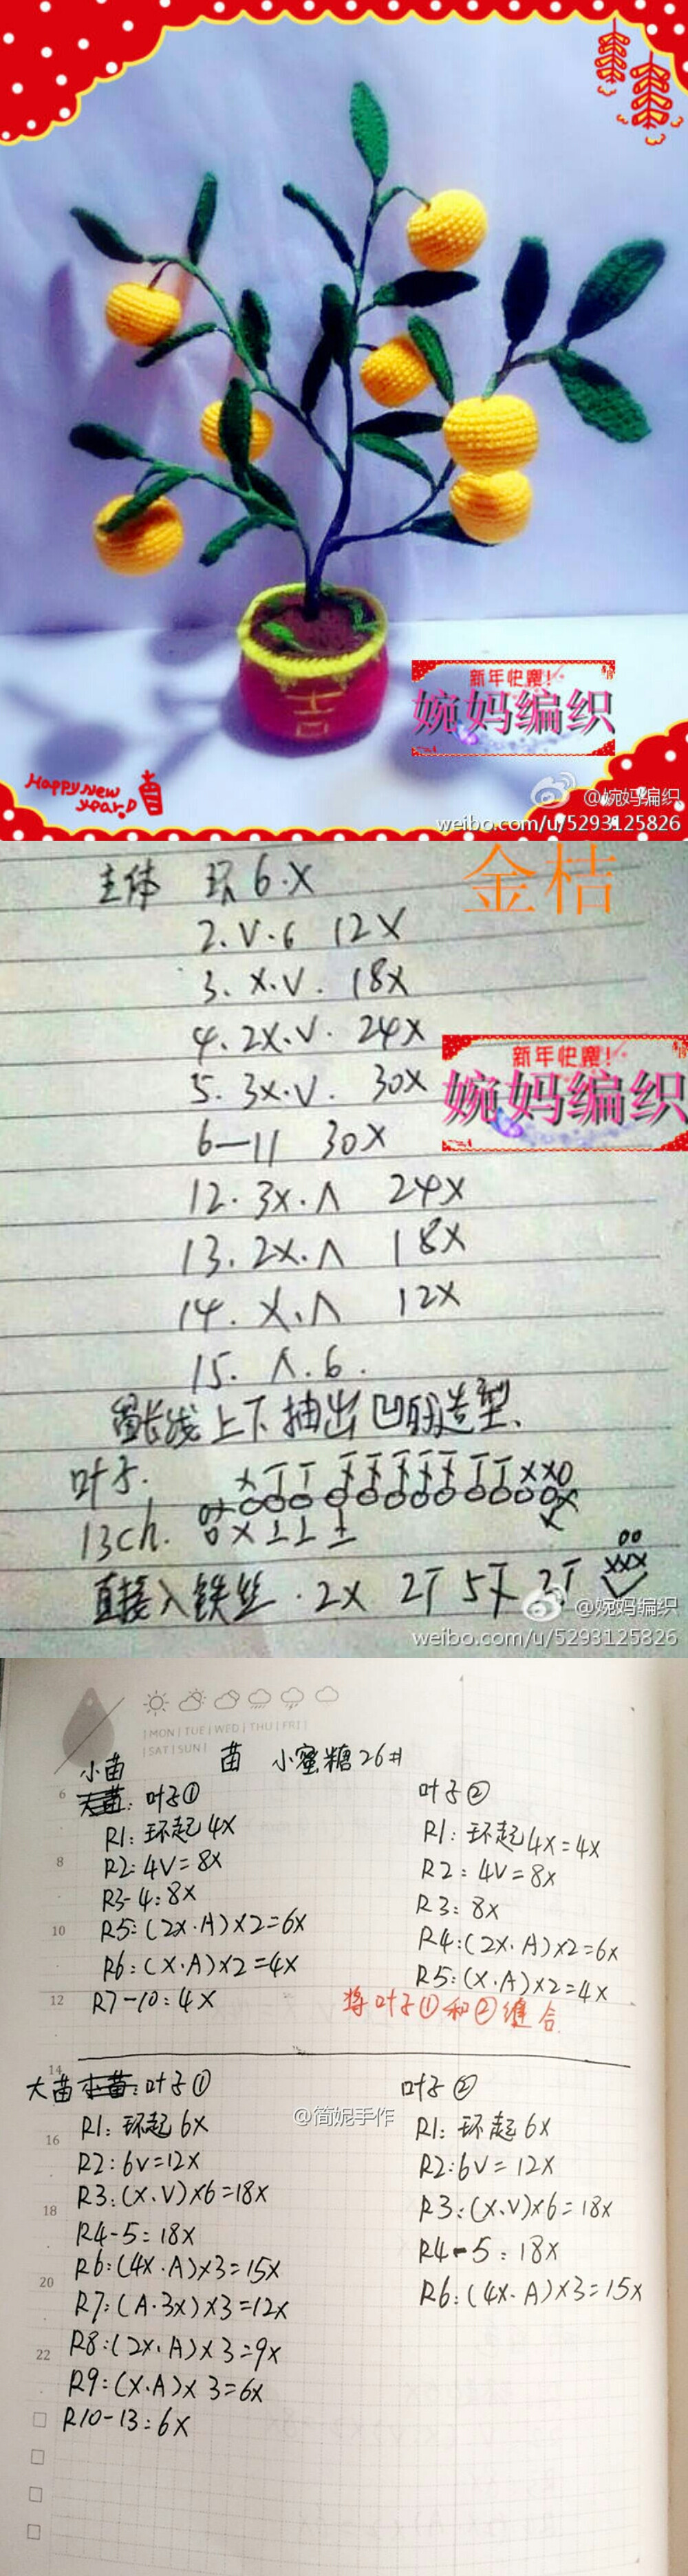 新年快乐!
婉妈编织
Happy new
year!
@婉妈编织
weibo.com/u/5293125826
金桔
主体 环6.X
2.V.6 12X
3.X.V. 18X
4.2X.V. 24X
5.3X.V. 30X
新年快乐!
婉妈编织
6—11 30X
12.3X.Λ 24X
13.2X.Λ 18X
14.X.Λ 12X
15.Λ.6.
留长线上下抽出凹陷造型.
叶子.
13ch.
直接入铁丝.2X 2T 5T 2T
@婉妈编织
weibo.com/u/5293125826
MON|TUE|WED|THU|FRI|
SAT|SUN|
苗 小蜜糖26#
小苗
叶子①
R1:环起4X
R2:4V=8X
R3-4:8X
R5:(2X.A)×2=6X
R6:(X.A)×2=4X
R7-10:4X
叶子②
R1:环起4X=4X
R2:4V=8X
R3:8X
R4:(2X.A)×2=6X
R5:(X.A)×2=4X
将叶子①和②缝合.
大苗 小苗:叶子①
R1:环起6X
R2:6V=12X
R3:(X.V)×6=18X
R4-5:18X
R6:(4X.A)×3=15X
R7:(A.3X)×3=12X
R8:(2X.A)×3=9X
R9:(X.A)×3=6X
R10-13:6X
叶子②
R1:环起6X
R2:6V=12X
R3:(X.V)×6=18X
R4-5:18X
R6:(4X.A)×3=15X
@简妮手作
6
8
10
12
14
16
18
20
22